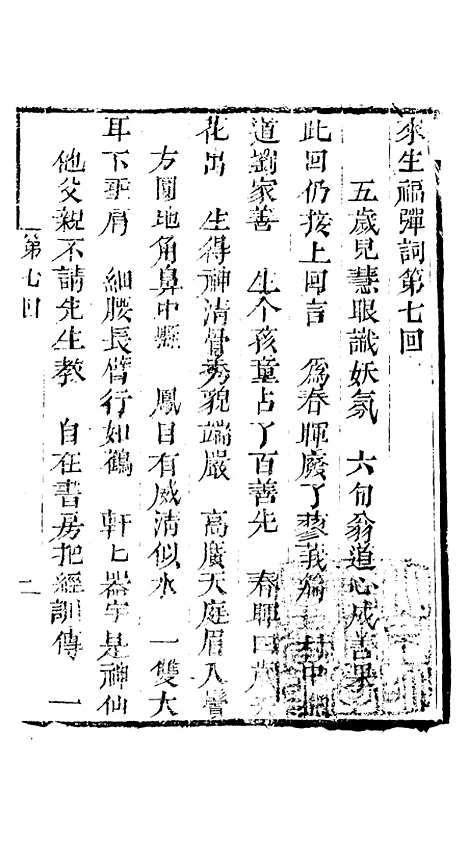 來生福彈詞第七回
五歲兒慧眼識妖氛　六旬翁道心成善果
此回仍接上回言　爲春暉廢了蓼莪篇　村中
道劉家善　生个孩童占了百善先　春暉日
花出　生得神清骨秀貌端嚴　高廣天庭眉入鬢
方圓地角鼻中懸　鳳目有威清似水　一雙大
耳下垂肩　細腰長臂行如鶴　軒匕器宇是神仙
他父親不請先生教　自在書房把經訓傳　一
第七回　二